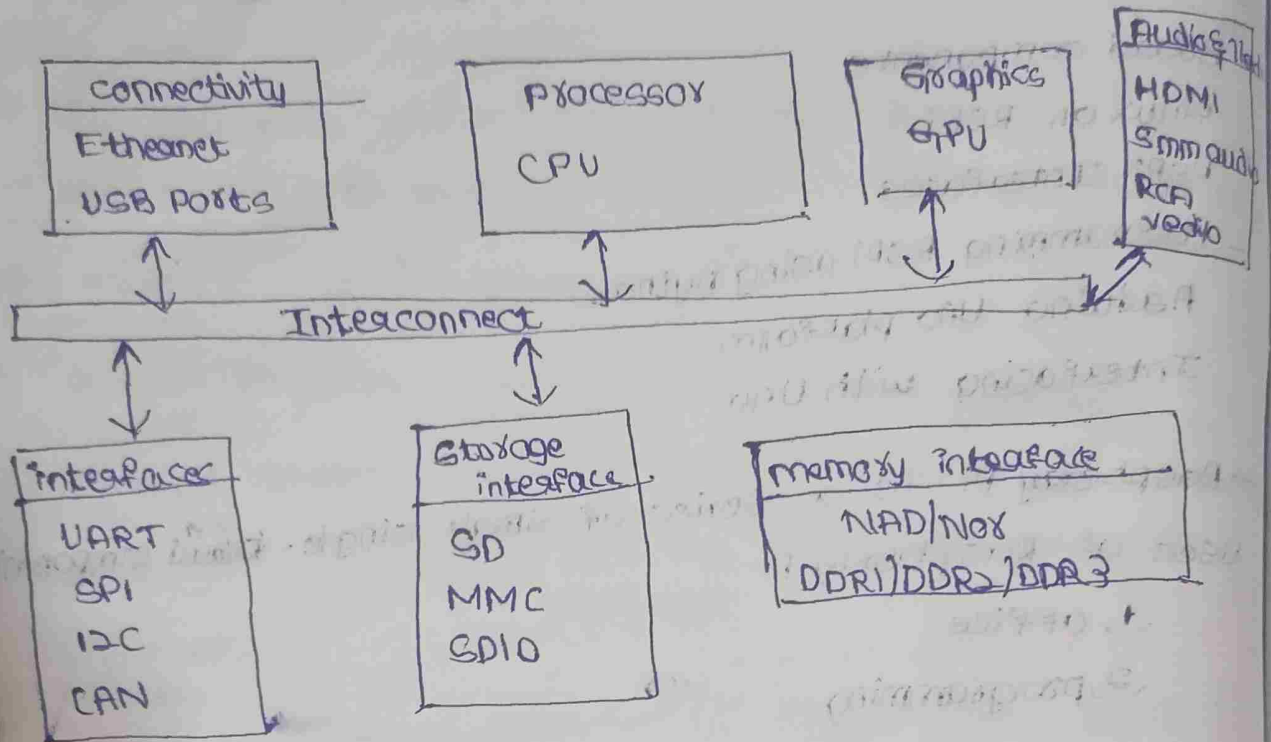 connectivity
Ethernet
USB Ports
processor
CPU
Graphics
GPU
Audio &
HDMI
5mm audio
RCA
vedio
Interconnect
interfaces
UART
SPI
I2C
CAN
Storage
interface
SD
MMC
SDIO
memory interface
NAD/NOr
DDR1/DDR2/DDR3